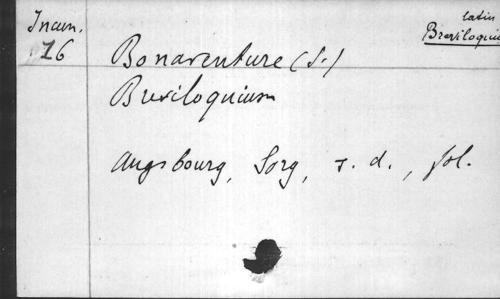 Incun.
16
latin
Breviloquiu
Bonaventure (S.)
Breviloquium
Augsbourg, Sorg, s. d., fol.